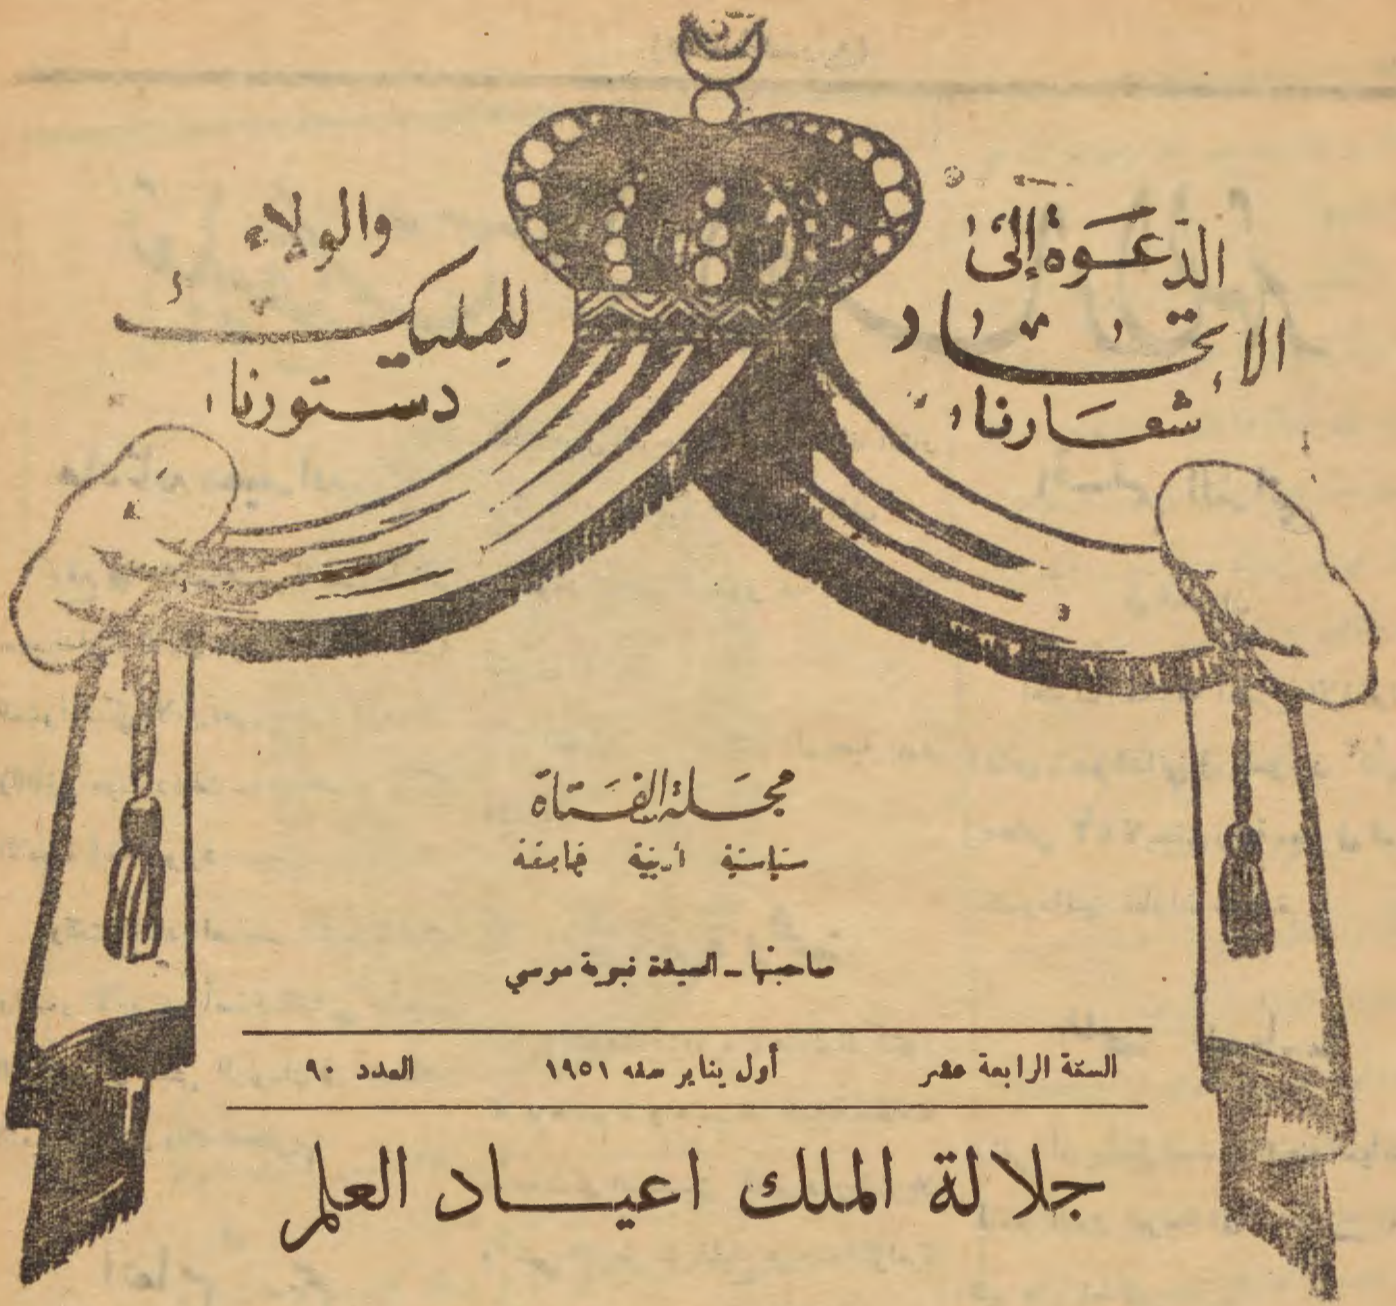 الدّعوة إلى
الإتحاد
شعارنا
والولاء
للمليك
دستورنا
مجلة الفتاة
سياسية أدبية جامعة
صاحبتها - السيدة نبوية موسى
السنة الرابعة عشر أول يناير سنه ١٩٥١ العدد ٩٠
جلالة الملك اعياد العلم